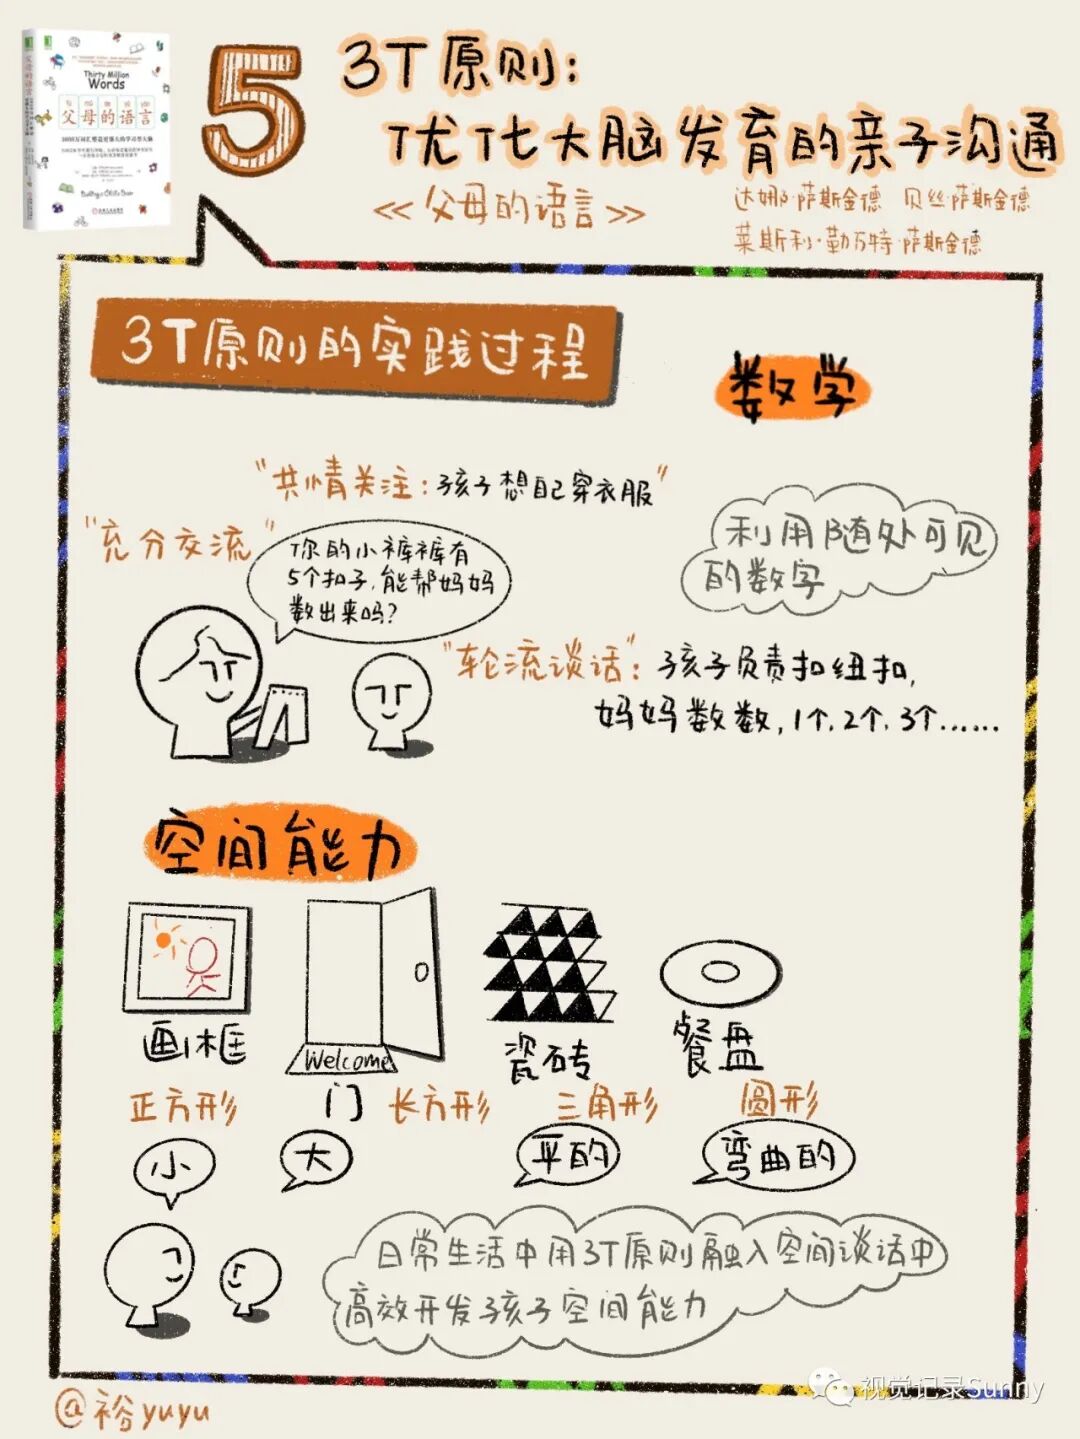 Thirty Million
Words
父母的语言
5
3T原则:
优化大脑发育的亲子沟通
《父母的语言》
达娜·萨斯金德 贝丝·萨斯金德
莱斯利·勒万特·萨斯金德
3T原则的实践过程
数学
"共情关注:孩子想自己穿衣服"
"充分交流"
你的小裤裤有
5个扣子,能帮妈妈
数出来吗?
利用随处可见
的数字
"轮流谈话":孩子负责扣纽扣,
妈妈数数,1个,2个,3个……
空间能力
Welcome
画框
门
瓷砖
餐盘
正方形
长方形
三角形
圆形
小
大
平的
弯曲的
日常生活中用3T原则融入空间谈话中
高效开发孩子空间能力
@裕yuyu
视觉记录Sunny